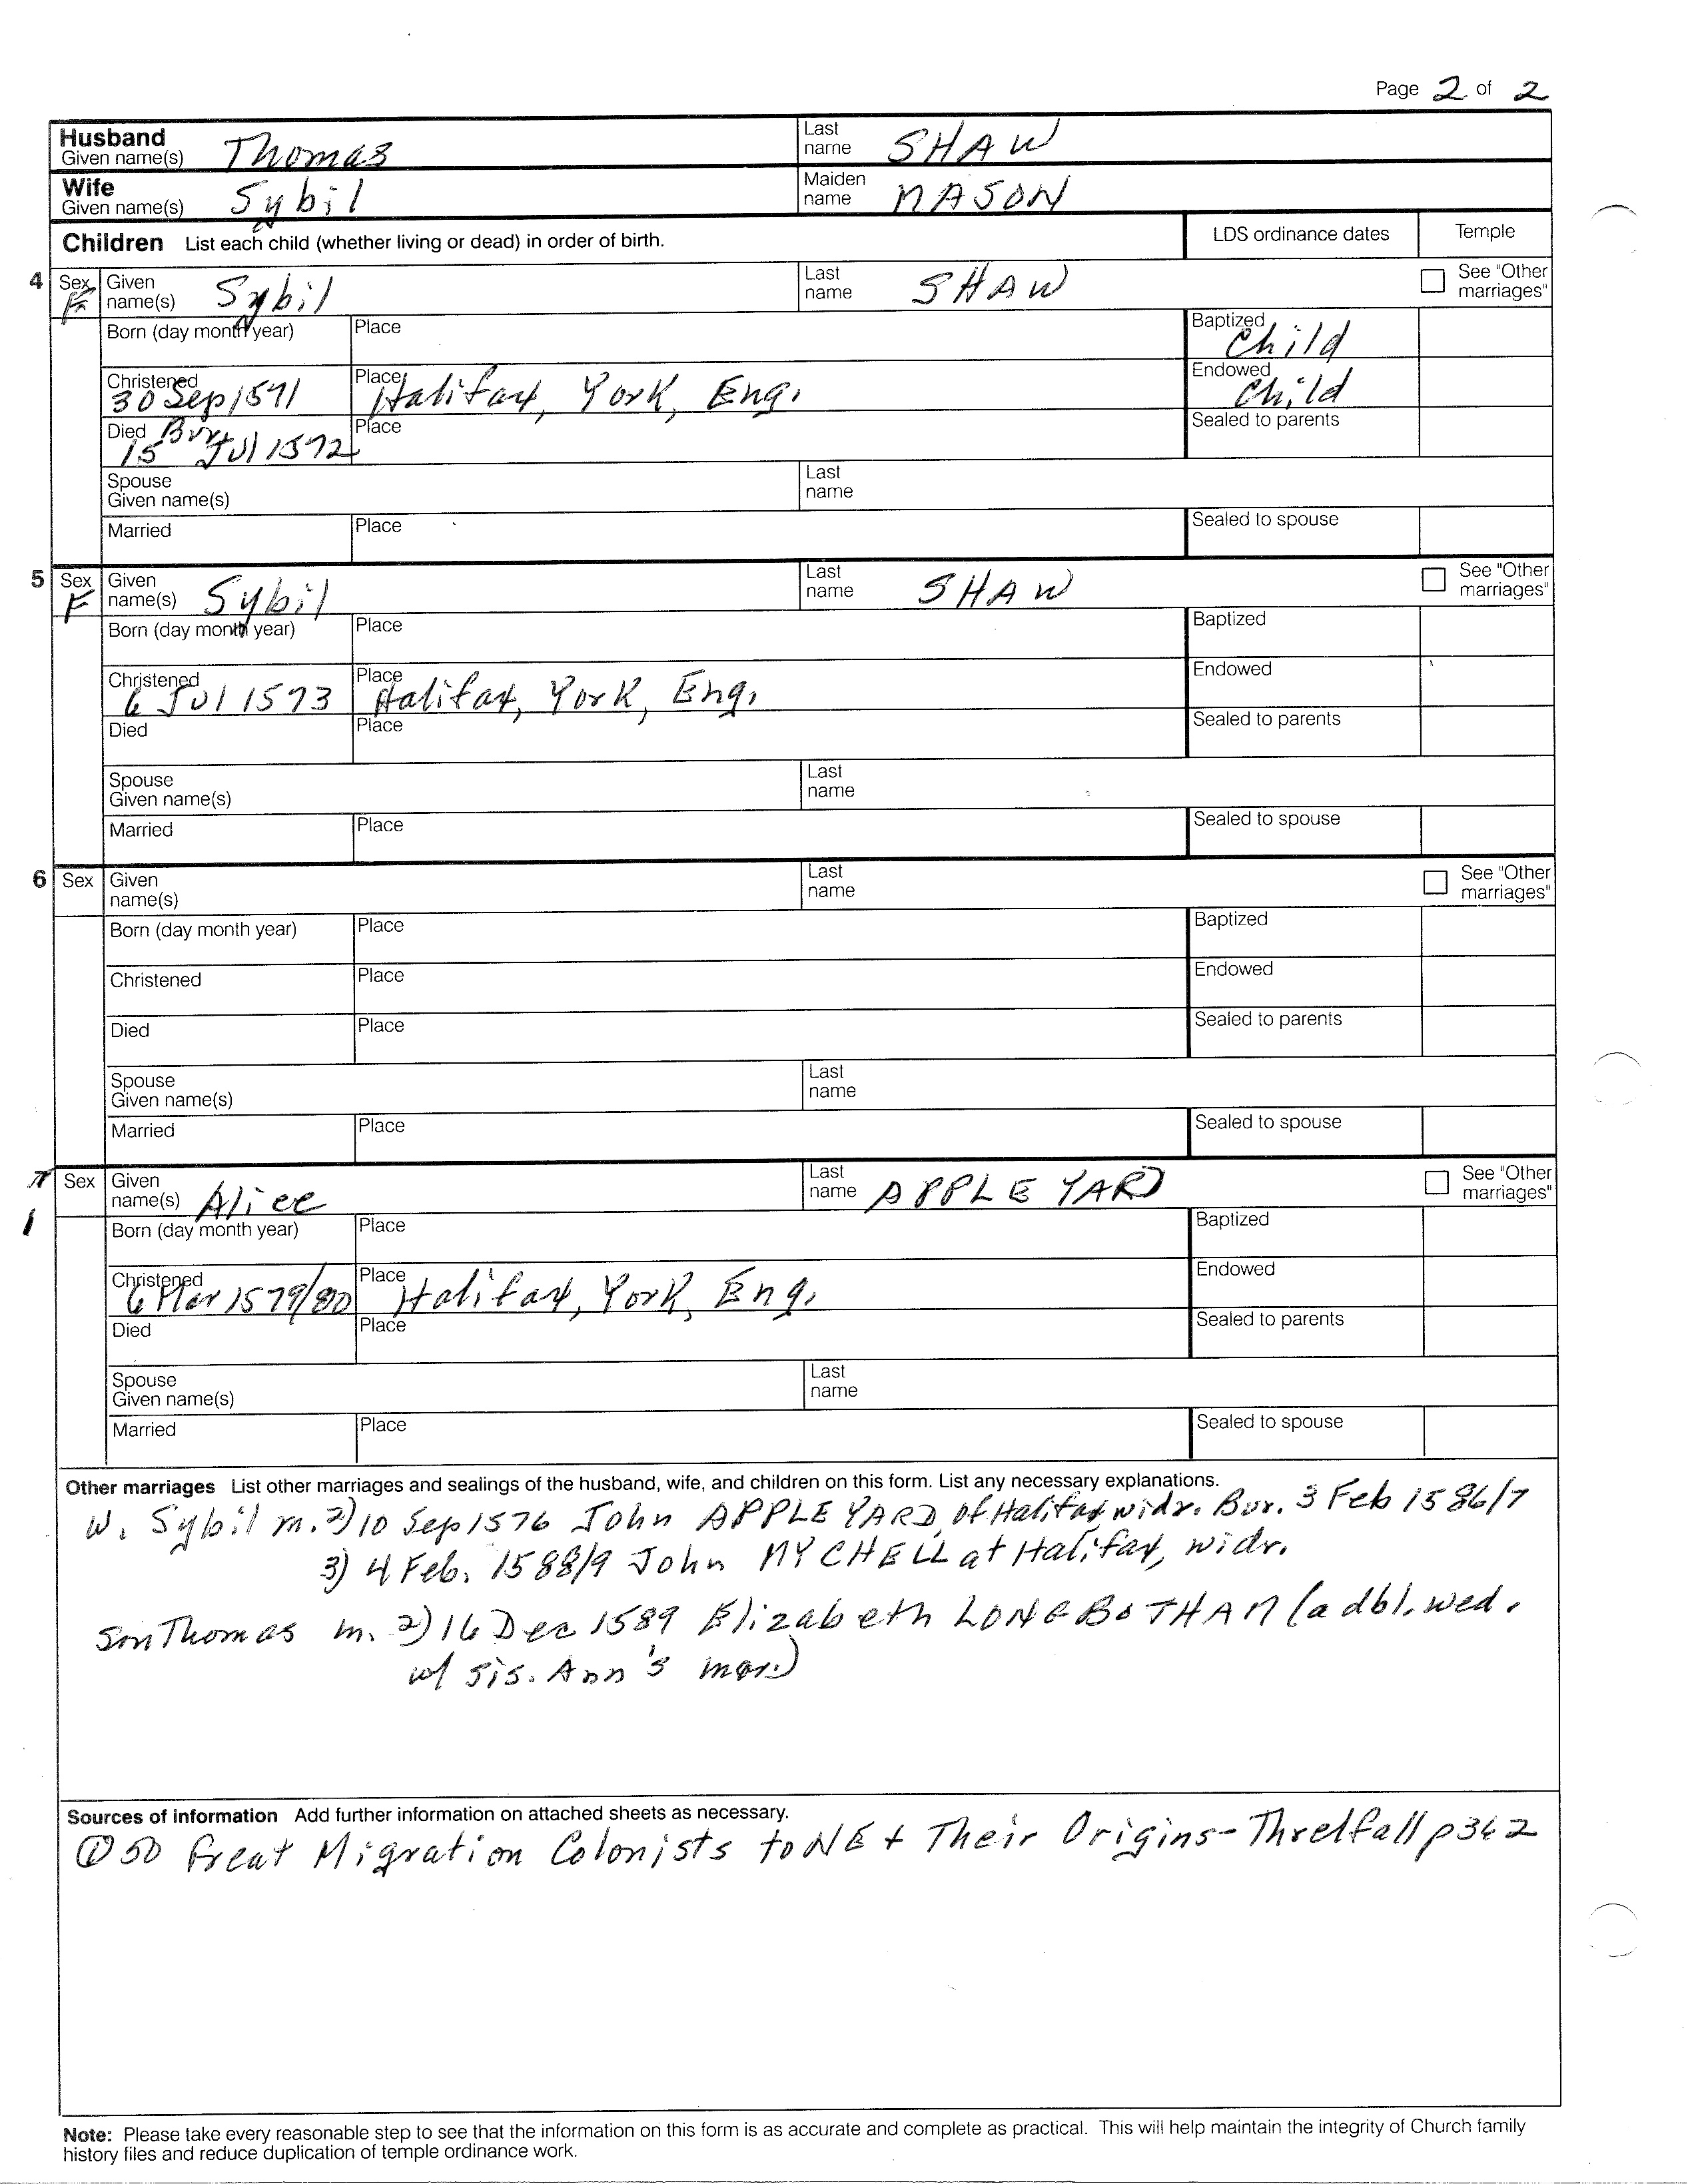 Page 2 of 2
Husband Given name(s) Thomas Last name SHAW
Wife Given name(s) Sybil Maiden name MASON
Children List each child (whether living or dead) in order of birth. LDS ordinance dates Temple
4 Sex F Given name(s) Sybil Last name SHAW See "Other marriages"
Born (day month year) Place Baptized Child
Christened 30 Sep 1571 Place Halifax, York, Eng. Endowed Child
Died Bur 15 Jul 1572 Place Sealed to parents
Spouse Given name(s) Last name
Married Place Sealed to spouse
5 Sex F Given name(s) Sybil Last name SHAW See "Other marriages"
Born (day month year) Place Baptized
Christened 6 Jul 1573 Place Halifax, York, Eng. Endowed
Died Place Sealed to parents
Spouse Given name(s) Last name
Married Place Sealed to spouse
6 Sex Given name(s) Last name See "Other marriages"
Born (day month year) Place Baptized
Christened Place Endowed
Died Place Sealed to parents
Spouse Given name(s) Last name
Married Place Sealed to spouse
1 Sex Given name(s) Alice Last name APPLEYARD See "Other marriages"
Born (day month year) Place Baptized
Christened 6 Mar 1579/80 Place Halifax, York, Eng. Endowed
Died Place Sealed to parents
Spouse Given name(s) Last name
Married Place Sealed to spouse
Other marriages List other marriages and sealings of the husband, wife, and children on this form. List any necessary explanations.
W. Sybil m. 2) 10 Sep 1576 John APPLEYARD, of Halifax widr. Bur. 3 Feb 1586/7
3) 4 Feb. 1588/9 John MYCHELL at Halifax, widr.
son Thomas m. 2) 16 Dec 1589 Elizabeth LONGBOTHAM (a dbl. wed.
w/ sis. Ann's mar.)
Sources of information Add further information on attached sheets as necessary.
① 50 Great Migration Colonists to NE + Their Origins - Threlfall p362
Note: Please take every reasonable step to see that the information on this form is as accurate and complete as practical. This will help maintain the integrity of Church family
history files and reduce duplication of temple ordinance work.